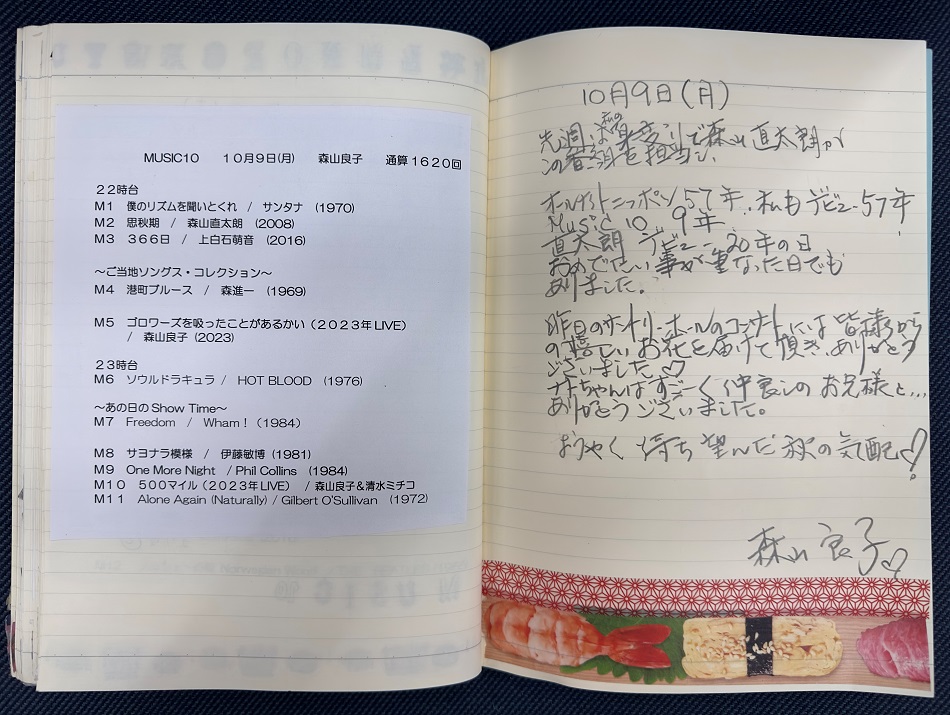 MUSIC10　10月9日(月)　森山良子　通算1620回
22時台
M1　僕のリズムを聞いとくれ　/　サンタナ　(1970)
M2　思秋期　/　森山直太朗　(2008)
M3　366日　/　上白石萌音　(2016)
～ご当地ソングス・コレクション～
M4　港町ブルース　/　森進一　(1969)
M5　ゴロワーズを吸ったことがあるかい（2023年LIVE）
/　森山良子 (2023)
23時台
M6　ソウルドラキュラ /　HOT BLOOD　(1976)
～あの日の Show Time～
M7　Freedom　/　Wham！ (1984)
M8　サヨナラ模様　/　伊藤敏博 (1981)
M9　One More Night　/ Phil Collins　(1984)
M10　500マイル（2023年LIVE）　/ 森山良子＆清水ミチコ
M11　Alone Again (Naturally) / Gilbert O'Sullivan　(1972)
10月9日(月)
先週は私の身変りで森山直太朗が
この番組を担当し、
オールナイトニッポン57年、私もデビュー57年
Music 10 9年
直太朗 デビュー20年の日
おめでたい事が重なった日でも
ありました。
昨日のサントリーホールのコンサートには皆様から
の嬉しいお花を届けて頂き、ありがとう
ございました♡
ナオちゃんはすごーく仲良しのお兄様と…
ありがとうございました。
ようやく待ち望んだ秋の気配♡!
森山良子♡